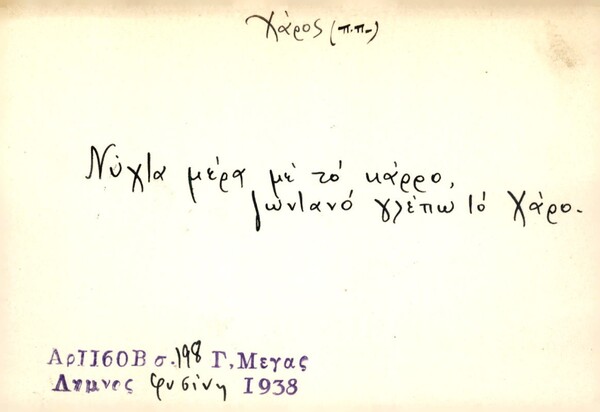 Χάρος (π.π-)
Νύχια μέρα μέ τό κάρρο,
ζωνιανό γλέπω τό Χάρο.
Αρ1160Β σ. 198 Γ. Μεγας
Λημνος Φυσίνη 1938